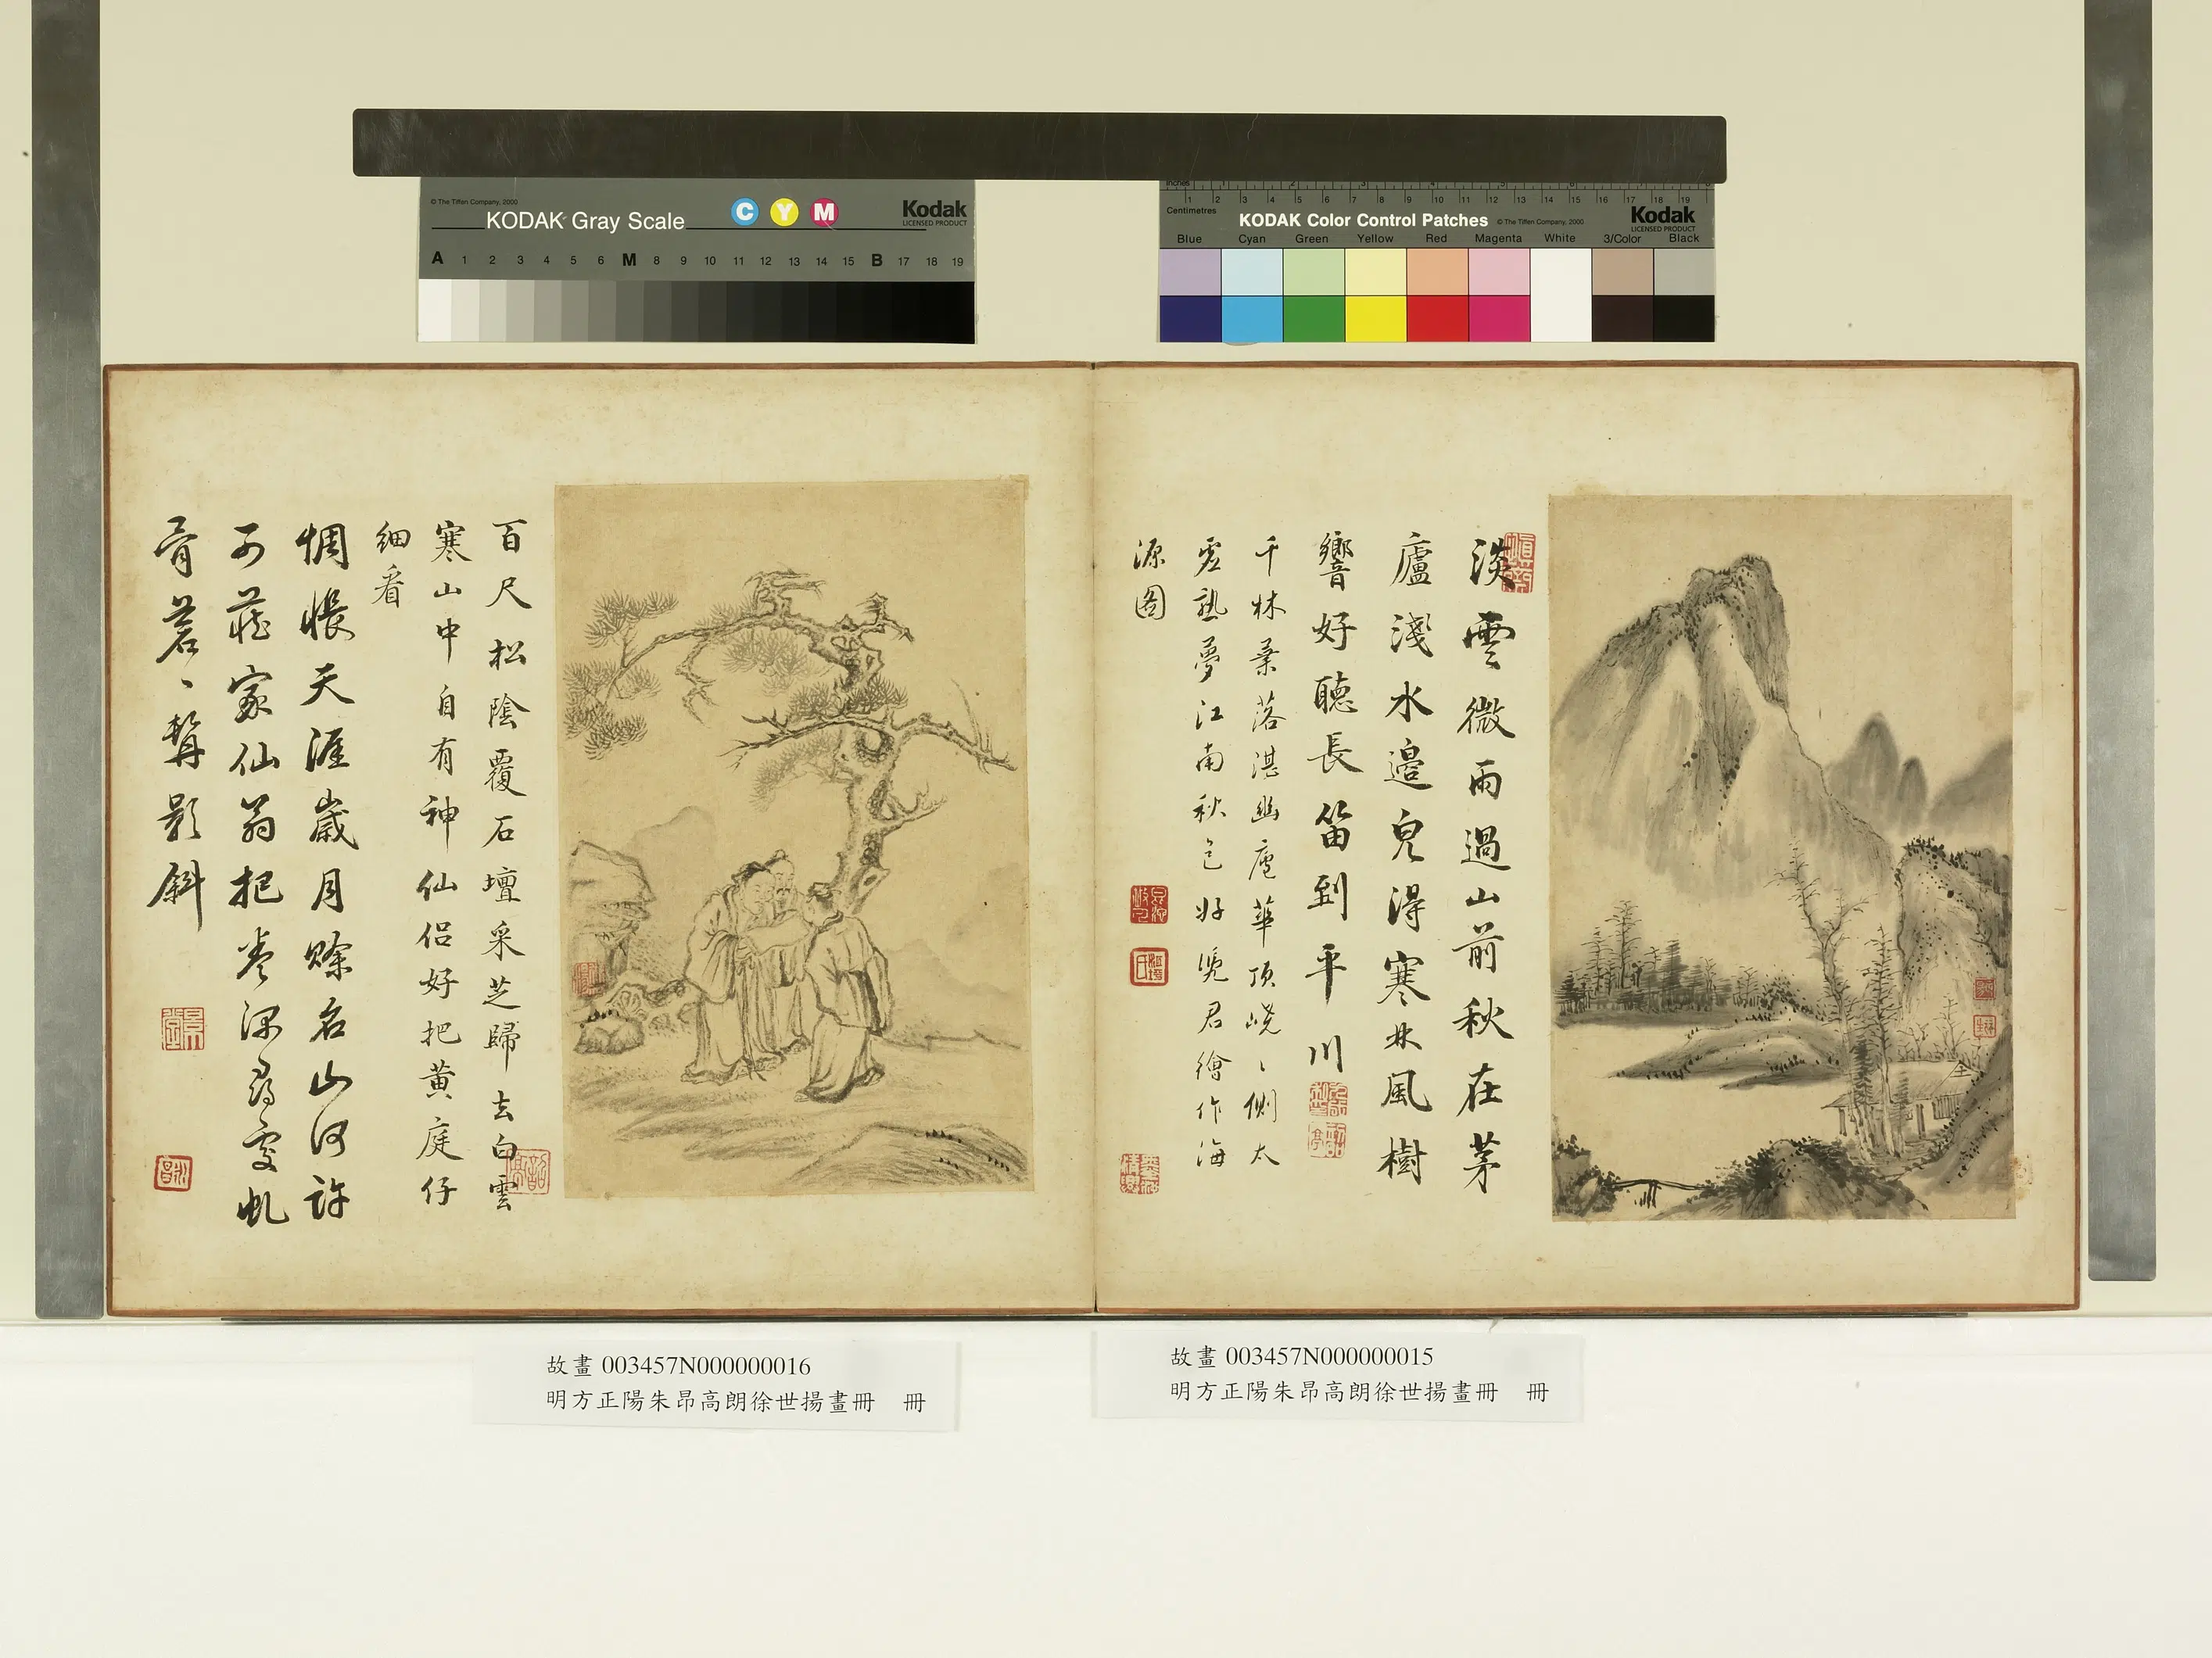 © The Tiffen Company, 2000
KODAK Gray Scale
C Y M
Kodak
LICENSED PRODUCT
A 1 2 3 4 5 6 M 8 9 10 11 12 13 14 15 B 17 18 19
Inches
Centimetres
1 2 3 4 5 6 7 8 9 10 11 12 13 14 15 16 17 18 19
KODAK Color Control Patches
© The Tiffen Company, 2000
Kodak
LICENSED PRODUCT
Blue Cyan Green Yellow Red Magenta White 3/Color Black
淡雲微雨過山前秋在茅
廬淺水邊兒得寒林風樹
響好聽長笛到平川
千林葉落湛幽廬華頂嶢、側太
虛熟夢江南秋色好覓君繪作海
源圖
百尺松陰覆石壇采芝歸去白雲
寒山中自有神仙侶好把黃庭仔
細看
惆悵天涯歲月賒名山何許
可藏家仙翁把卷深尋處虬
骨蒼、鶴影斜
故畫 003457N000000016
明方正陽朱昂高朗徐世揚畫冊 冊
故畫 003457N000000015
明方正陽朱昂高朗徐世揚畫冊 冊